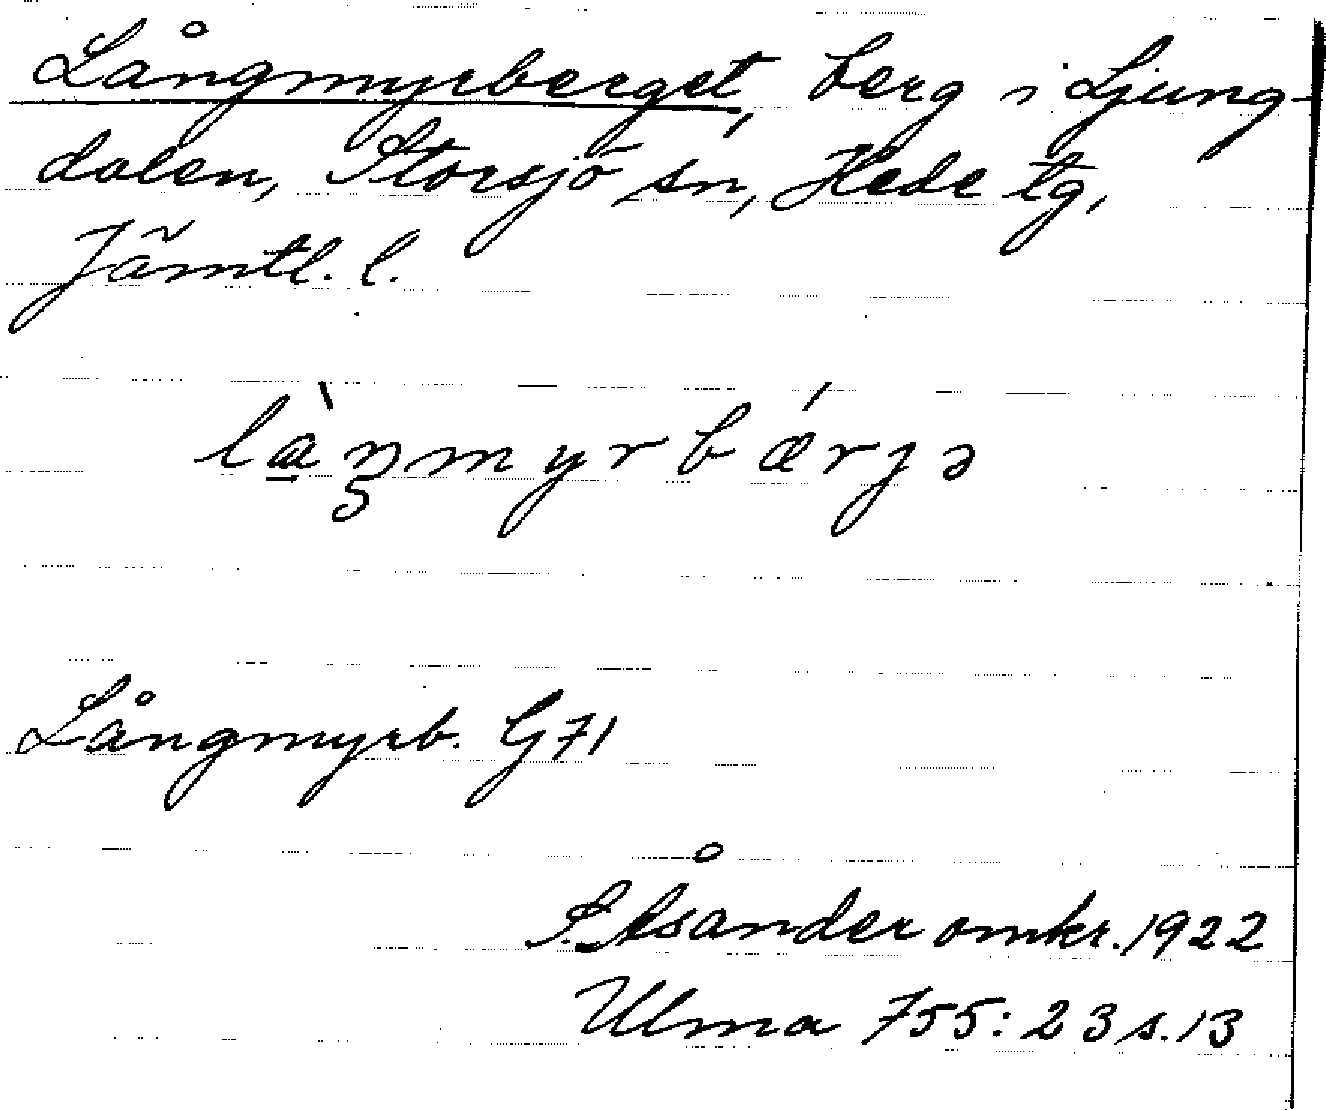 Långmyrberget, berg i Ljung-
dalen, Storsjö sn, Hede tg,
Jämtl. l.
là̱ŋmyrbǽrjə
Långmyrb. G71
S. Åsander omkr. 1922
Ulma 755: 23 s. 13